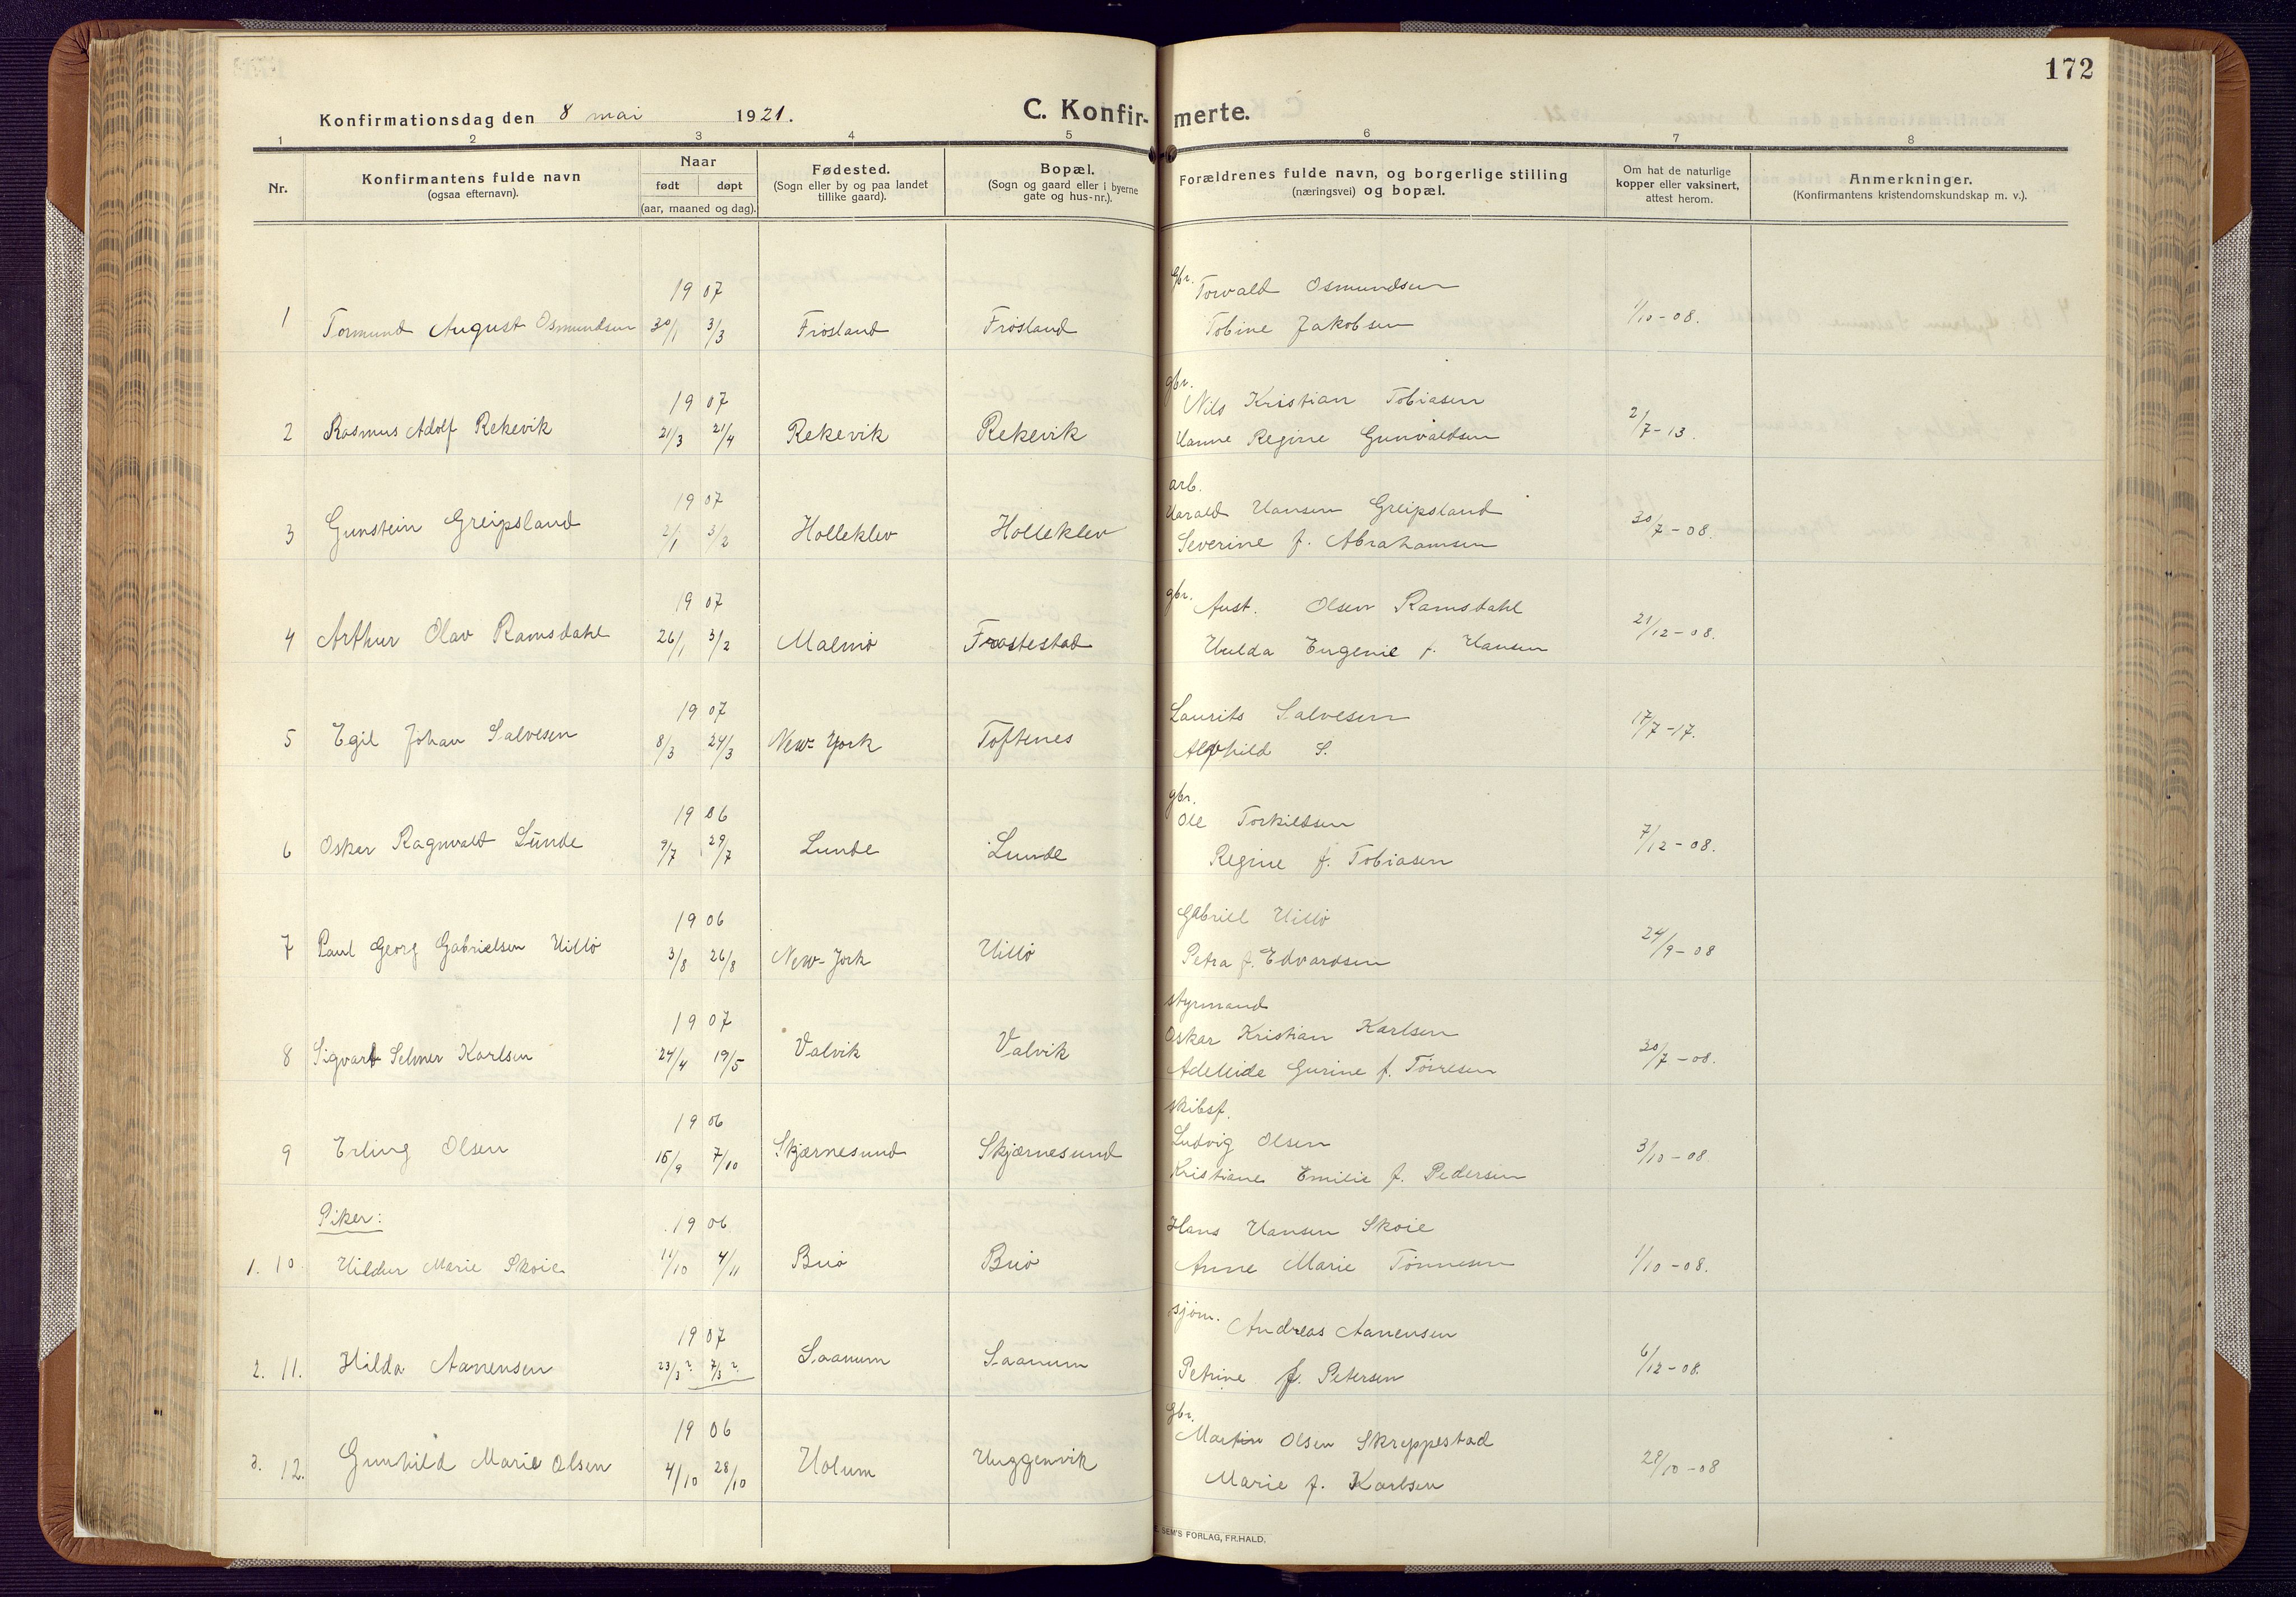 172
Konfirmationsdag den 8 mai 1921. C. Konfir- merte.
1 2 3 4 5 6 7 8
Nr. Konfirmantens fulde navn (ogsaa efternavn). Naar født døpt (aar, maaned og dag). Fødested. (Sogn eller by og paa landet tillike gaard). Bopæl. (Sogn og gaard eller i byerne gate og hus-nr.). Forældrenes fulde navn, og borgerlige stilling (næringsvei) og bopæl. Om hat de naturlige kopper eller vaksinert, attest herom. Anmerkninger. (Konfirmantens kristendomskundskap m. v.).
19 07 gbr. Torvald Osmundsen
1 Tormund August Osmundsen 30/1 3/3 Frøsland Frøsland Tobine Jakobsen 1/10-08.
19 07 gbr. Nils Kristian Tobiasen
2 Rasmus Adolf Rekevik 21/3 21/4 Rekevik Rekevik Hanne Regine Gunvaldsen 2/7-13.
19 07 arb. Harald Hansen Greipsland
3 Gunstein Greipsland 2/1 3/2 Holleklev Holleklev Severine f. Abrahamsen 30/7-08.
19 07 gbr. Aust. Olsen Ramsdahl
4 Arthur Olav Ramsdahl 26/1 3/2 Malmø Frøstestad Hulda Eugenie f. Hansen 21/12-08.
19 07 Laurits Salvesen
5 Egil Johan Salvesen 8/3 24/3 New-York Toftenes Alfhild S. 17/7-17.
19 06 gbr. Ole Torkildsen
6 Oskar Ragnvald Lunde 9/7 29/7 Lunde Lunde Regine f. Tobiasen 7/12-08.
19 06 Gabriel Uillø
7 Paul Georg Gabrielsen Uillø 3/8 26/8 New-York Uillø Petra f. Edvardsen 24/9-08
19 07 styrmand Oskar Kristian Karlsen
8 Sigvart Selmer Karlsen 24/4 19/5 Valvik Valvik Adelleide Gurine f. Tørresen 30/7-08.
19 06 skibsf. Ludvig Olsen
9 Erling Olsen 15/9 7/10 Skjærnesund Skjærnesund Kristiane Emilie f. Pedersen 3/10-08
Piker: 19 06 Hans Hansen Skoie
1. 10 Hildur Marie Skoie 11/10 4/11 Buø Buø Anne Marie Tønnesen 1/10-08.
19 07 sjøm. Andreas Aanensen
2. 11. Hilda Aanensen 23/3? 7/3? Saanum Saanum Petrine f. Petersen 6/12-08.
19 06 Gbr. Martin Olsen Skreppestad
3. 12. Gunhild Marie Olsen 4/10 28/10 Holum Huggenvik Marie f. Karlsen 28/10-08
SEM'S FORLAG, FR.HALD.